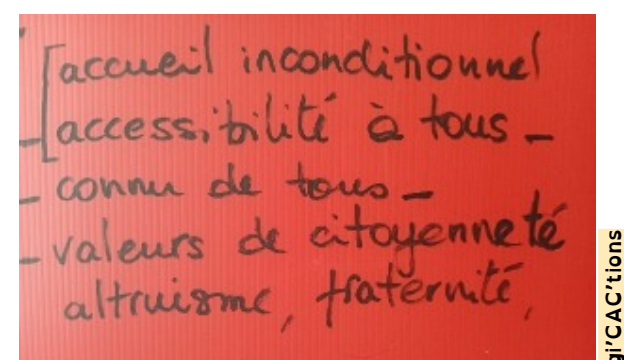 [accueil inconditionnel
-[accessibilité à tous -
- connu de tous -
- valeurs de citoyenneté
altruisme, fraternité,
gi'CAC'tions